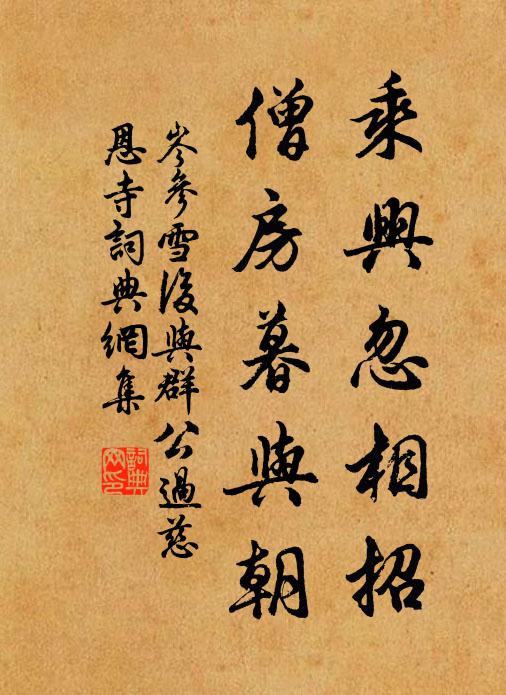 乘興忽相招
僧房暮與朝
岑參雪後與群公過慈
恩寺詞典網集
詞典網印